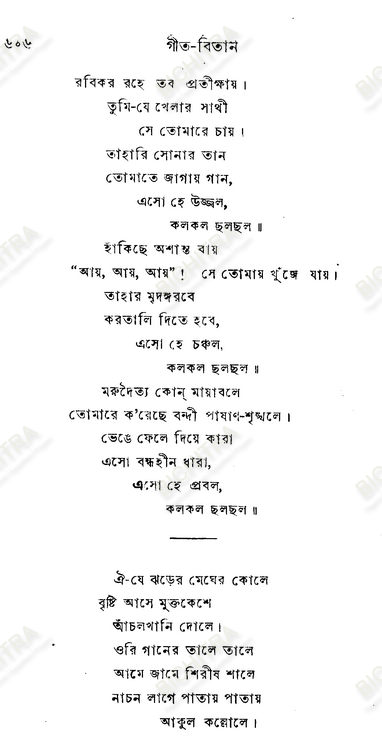 ৬০৬ গীত-বিতান
রবিকর রহে তব প্রতীক্ষায়।
তুমি-যে খেলার সাথী
সে তোমারে চায়।
তাহারি সোনার তান
তোমাতে জাগায় গান,
এসো হে উজ্জ্বল,
কলকল ছলছল॥
হাঁকিছে অশান্ত বায়
“আয়, আয়, আয়”! সে তোমায় খুঁজে যায়।
তাহার মৃদঙ্গরবে
করতালি দিতে হবে,
এসো হে চঞ্চল,
কলকল ছলছল॥
মরুদৈত্য কোন্ মায়াবলে
তোমারে ক’রেছে বন্দী পাষাণ-শৃঙ্খলে।
ভেঙে ফেলে দিয়ে কারা
এসো বন্ধহীন ধারা,
এসো হে প্রবল,
কলকল ছলছল॥
ঐ-যে ঝড়ের মেঘের কোলে
বৃষ্টি আসে মুক্তকেশে
আঁচলখানি দোলে।
ওরি গানের তালে তালে
আমে জামে শিরীষ শালে
নাচন লাগে পাতায় পাতায়
আকুল কল্লোলে।
BICHITRA